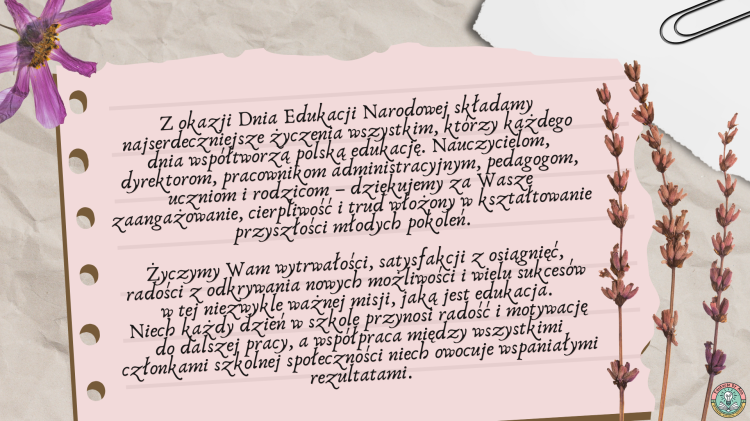 Z okazji Dnia Edukacji Narodowej składamy
najserdeczniejsze życzenia wszystkim, którzy każdego
dnia współtworzą polską edukację. Nauczycielom,
dyrektorom, pracownikom administracyjnym, pedagogom,
uczniom i rodzicom – dziękujemy za Wasze
zaangażowanie, cierpliwość i trud włożony w kształtowanie
przyszłości młodych pokoleń.
Życzymy Wam wytrwałości, satysfakcji z osiągnięć,
radości z odkrywania nowych możliwości i wielu sukcesów
w tej niezwykle ważnej misji, jaką jest edukacja.
Niech każdy dzień w szkole przynosi radość i motywację
do dalszej pracy, a współpraca między wszystkimi
członkami szkolnej społeczności niech owocuje wspaniałymi
rezultatami.